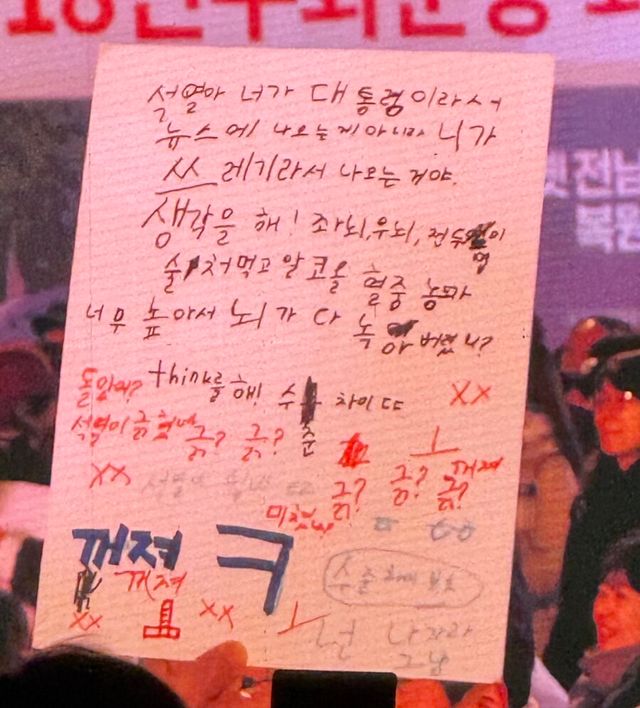 석열아 너가 대통령이라서
뉴스에 나오는게 아니라 니가
쓰레기라서 나오는 거야.
생각을 해! 좌뇌,우뇌, 전두엽이
술 처먹고 알코올 혈중 농도가
너무 높아서 뇌가 다 녹아버렸니?
think를 해! 수준 차이 ㄷㄷ
XX
돌았어?
석열이 긁혔네 긁? 긁?
ㅗ
XX
긁? 긁? 긁?
꺼져
미쳤니?
꺼져 ㅋ
꺼져
XX
ㅗ
XX
ㅗ
넌 나가라
그냥